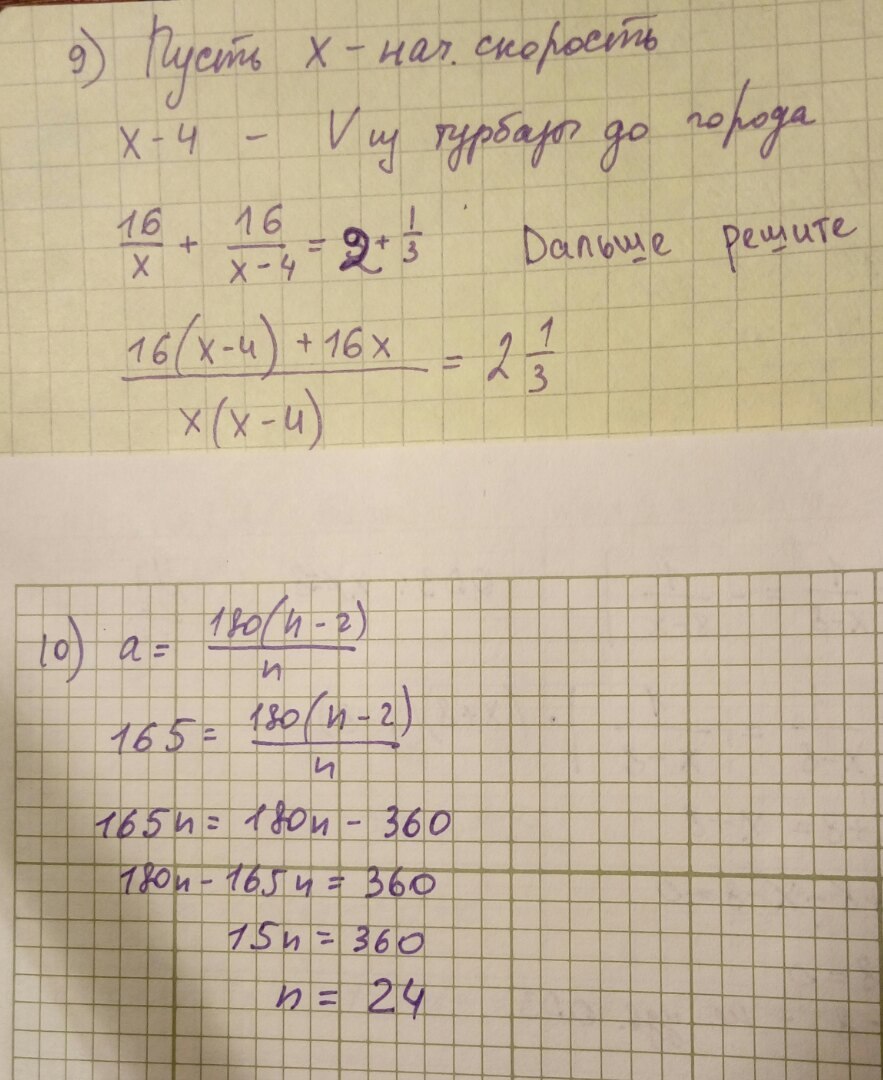 9) Пусть x - нач. скорость
x-4 - V из турбазы до города
16/x + 16/(x-4) = 2 + 1/3 Дальше решите
(16(x-4)+16x)/(x(x-4)) = 2 1/3
10) a = 180(n-2)/n
165 = 180(n-2)/n
165n = 180n - 360
180n - 165n = 360
15n = 360
n = 24